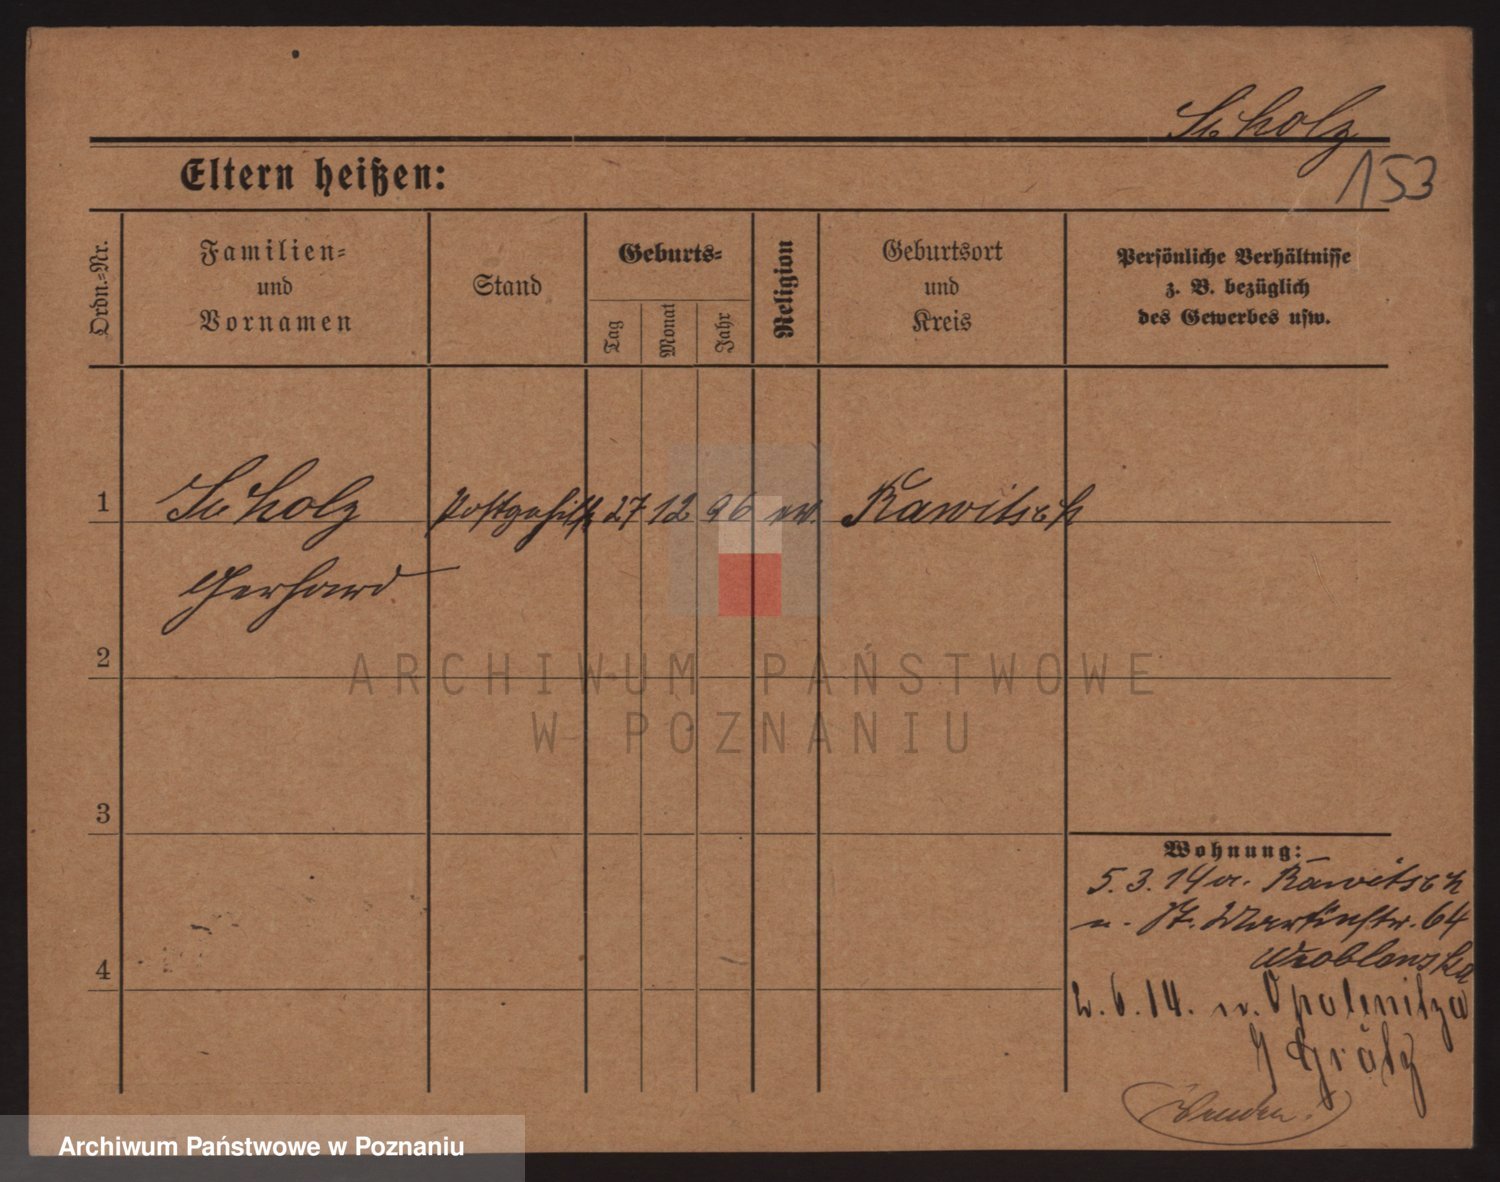 Scholz
153
Eltern heißen:
Ordn.=Nr.
Familien=
und
Vornamen
Stand
Geburts=
Tag
Monat
Jahr
Religion
Geburtsort
und
Kreis
Persönliche Verhältnisse
z. B. bezüglich
des Gewerbes usw.
1
Scholz
Postgehilf
27
12
96
ev.
Rawitsch
Gerhard
2
ARCHIWUM PAŃSTWOWE
W POZNANIU
3
Wohnung:
5. 3. 14 v. Rawitsch
n. St. Martinstr. 64
Wroblewska
2. 6. 14. n. Opalenitza
Grätz
4
Wenden!
Archiwum Państwowe w Poznaniu